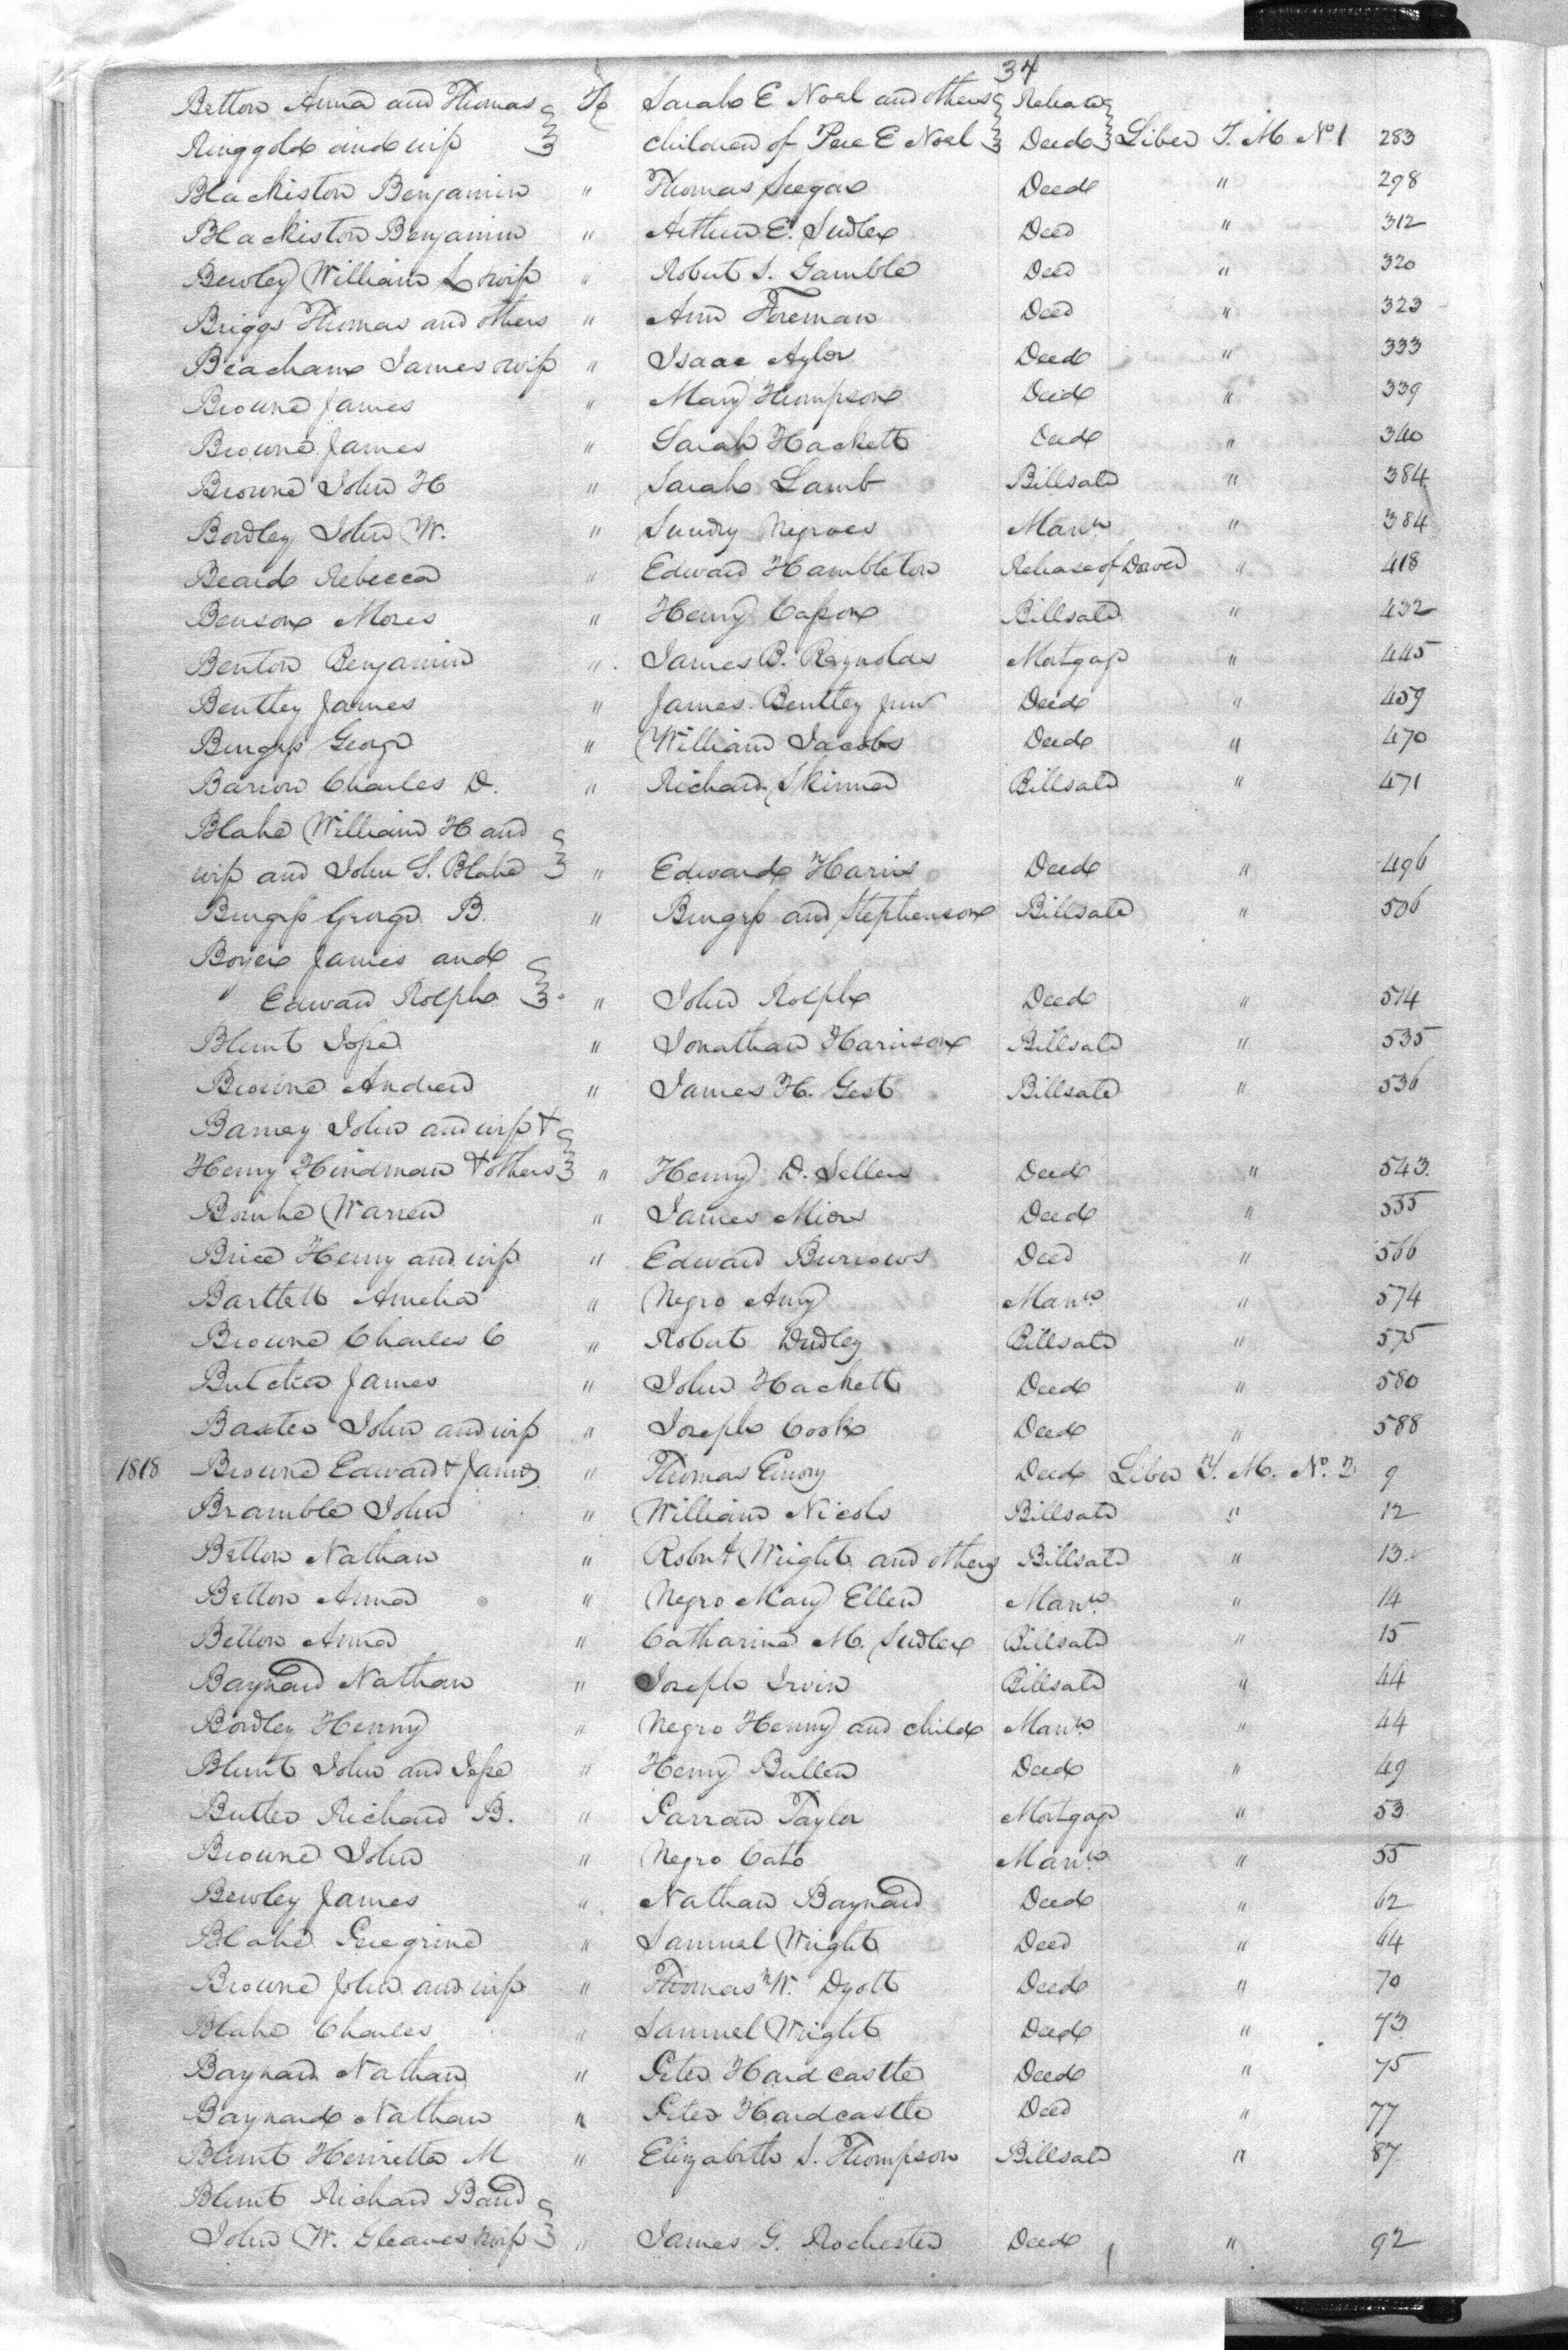 34
Betton Anna and Thomas To Sarah E Noel and others Release
Ringgold and wife children of Pere E Noel Deed Liber T. M. No 1 283
Blackiston Benjamin " Thomas Seegar Deed " 298
Blackiston Benjamin " Arthur E. Sudler Deed " 312
Bewley William & wife " Robert S. Gamble Deed " 320
Briggs Thomas and others " Ann Foreman Deed " 323
Beacham James & wife " Isaac Aylor Deed " 333
Browne James " Mary Thompson Deed " 339
Browne James " Sarah Hackett Deed " 340
Browne John H " Sarah Lamb Billsale " 384
Bordley John W. " Sundry Negroes Mann " 384
Beard Rebecca " Edward Hambleton Release of Dower " 418
Benson Moses " Henry Capon Billsale " 432
Benton Benjamin " James B. Reynolds Mortgage " 445
Bentley James " James Bentley junr Deed " 459
Burgess George " William Jacobs Deed " 470
Barrow Charles D. " Richard Skinner Billsale " 471
Blake William H and
wife and John S. Blake " Edward Harris Deed " 496
Burgess George B. " Burgess and Stephenson Billsale " 506
Boyer James and
" Edward Rolph " John Rolph Deed " 514
Blunt Jesse " Jonathan Harrison Billsale " 535
Browne Andrew " James H. Gest Billsale " 536
Barney John and wife &
Henry Hindman & others " Henry D. Sellers Deed " 543
Warren " James Deed " 555
Brice Henry and wife " Edward Burrows Deed " 566
Bartlett Amelia " Negro Amy Mann " 574
Browne Charles C " Robert Dudley Billsale " 575
Butcher James " John Hackett Deed " 580
Baxter John and wife " Joseph Cook Deed " 588
1818 Browne Edward & James " Thomas Emory Deed Liber T. M. No. 2 9
Bramble John " William Nicols Billsale " 12
Betton Nathan " Robert Wright and others Billsale " 13
Betton Anna " Negro Mary Ellen Mann " 14
Betton Anna " Catharine M. Sudler Billsale " 15
Baynard Nathan " Joseph Irvin Billsale " 44
Bordley Henny " Negro Henny and child Mann " 44
Blunt John and Jesse " Henry Bullen Deed " 49
Butler Richard B. " Farran Taylor Mortgage " 53
Browne John " Negro Cato Mann " 55
Bewley James " Nathan Baynard Deed " 62
Blake Peregrine " Samuel Wright Deed " 64
Browne John and wife " Thomas W. Dyott Deed " 70
Blake Charles " Samuel Wright Deed " 73
Baynard Nathan " Peter Hardcastle Deed " 75
Baynard Nathan " Peter Hardcastle Deed " 77
Blunt Henrietta M " Elizabeth S. Thompson Billsale " 87
Blunt Richard B and
John W. Gleaves & wife " James G. Rochester Deed " 92